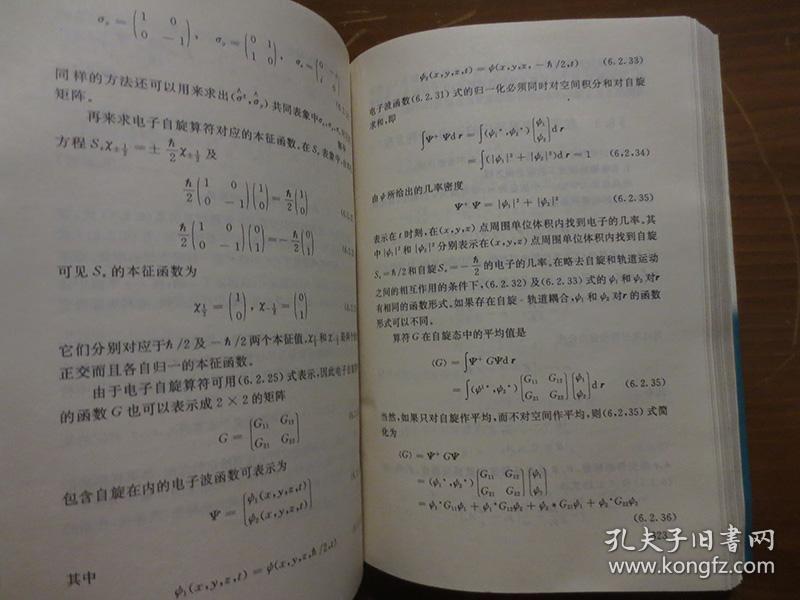 同样的方法还可以用来求出(σ̂², σ̂ᵧ)共同表象中
矩阵。
再来求电子自旋算符对应的本征函数。在S_z表象中,
方程 S_z χ_{±1/2} = ± ħ/2 χ_{±1/2} 及
ħ/2 (1 0; 0 −1)(1; 0) = ħ/2 (1; 0)
ħ/2 (1 0; 0 −1)(0; 1) = −ħ/2 (0; 1)
可见 S_z 的本征函数为
χ_{1/2} = (1; 0), χ_{-1/2} = (0; 1)
它们分别对应于ħ/2 及 −ħ/2 两个本征值,χ_{1/2}和χ_{-1/2}
正交而且各自归一的本征函数。
由于电子自旋算符可用(6.2.25)式表示,因此电子
的函数 G 也可以表示成 2×2 的矩阵
G = [G11 G12; G21 G22]
包含自旋在内的电子波函数可表示为
Ψ = [ψ1(x,y,z,t); ψ2(x,y,z,t)]
其中
ψ1(x,y,z,t) = ψ(x,y,z,ħ/2,t)
ψ2(x,y,z,t) = ψ(x,y,z,−ħ/2,t) (6.2.33)
电子波函数(6.2.31)式的归一化必须同时对空间积分和对自旋
求和,即
∫Ψ⁺Ψdr = ∫(ψ1*,ψ2*)[ψ1; ψ2]dr
= ∫(|ψ1|² + |ψ2|²)dr = 1 (6.2.34)
由ψ所给出的几率密度
Ψ⁺Ψ = |ψ1|² + |ψ2|² (6.2.35)
表示在t时刻,在(x,y,z)点周围单位体积内找到电子的几率。其
中|ψ1|²和|ψ2|²分别表示在(x,y,z)点周围单位体积内找到自旋
S_z=ħ/2和自旋S_z=−ħ/2的电子的几率。在略去自旋和轨道运动
之间的相互作用的条件下,(6.2.32)及(6.2.33)式的ψ1和ψ2对r
有相同的函数形式。如果存在自旋-轨道耦合,ψ1和ψ2对r的函数
形式可以不同。
算符G在自旋态中的平均值是
⟨G⟩ = ∫Ψ⁺GΨdr
= ∫(ψ1*,ψ2*)[G11 G12; G21 G22][ψ1; ψ2]dr (6.2.35)
当然,如果只对自旋作平均,而不对空间作平均,则(6.2.35)式简
化为
⟨G⟩ = Ψ⁺GΨ
= (ψ1*,ψ2*)[G11 G12; G21 G22][ψ1; ψ2]
= ψ1*G11ψ1 + ψ1*G12ψ2 + ψ2*G21ψ1 + ψ2*G22ψ2
(6.2.36)
孔夫子旧书网
www.kongfz.com